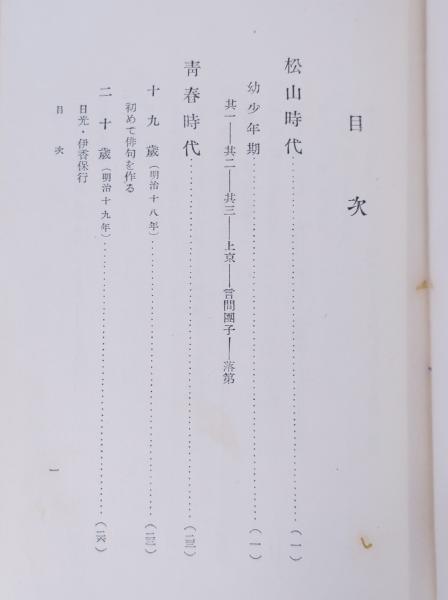 目次
松山時代……………………（一）
幼少年期……………………（一）
其一――其二――其三――上京――言問團子――落第
靑春時代……………………（三三）
十九歳（明治十八年）……………………（三三）
初めて俳句を作る
二十歳（明治十九年）……………………（三六）
日光・伊香保行
目次
一